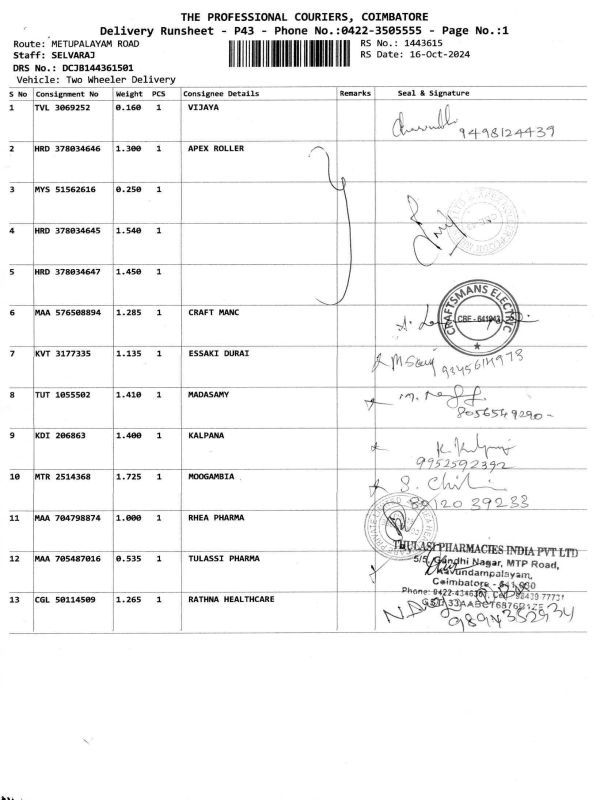 THE PROFESSIONAL COURIERS, COIMBATORE
Delivery Runsheet - P43 - Phone No.:0422-3505555 - Page No.:1
Route: METUPALAYAM ROAD RS No.: 1443615
Staff: SELVARAJ RS Date: 16-Oct-2024
DRS No.: DCJB144361501
Vehicle: Two Wheeler Delivery
S No Consignment No Weight PCS Consignee Details Remarks Seal & Signature
1 TVL 3069252 0.160 1 VIJAYA
9498124439
2 HRD 378034646 1.300 1 APEX ROLLER
3 MYS 51562616 0.250 1
4 HRD 378034645 1.540 1
5 HRD 378034647 1.450 1
6 MAA 576508894 1.285 1 CRAFT MANC
CRAFTSMANS ELECTRIC
CBE - 641043
7 KVT 3177335 1.135 1 ESSAKI DURAI
9345614973
8 TUT 1055502 1.410 1 MADASAMY
8056549290-
9 KDI 206863 1.400 1 KALPANA
9952592392
10 MTR 2514368 1.725 1 MOOGAMBIA
39233
11 MAA 704798874 1.000 1 RHEA PHARMA
THULASI PHARMACIES INDIA PVT LTD
12 MAA 705487016 0.535 1 TULASSI PHARMA
Gandhi Nagar, MTP Road,
Kavundampalayam,
Coimbatore
13 CGL 50114509 1.265 1 RATHNA HEALTHCARE
Phone: 0422